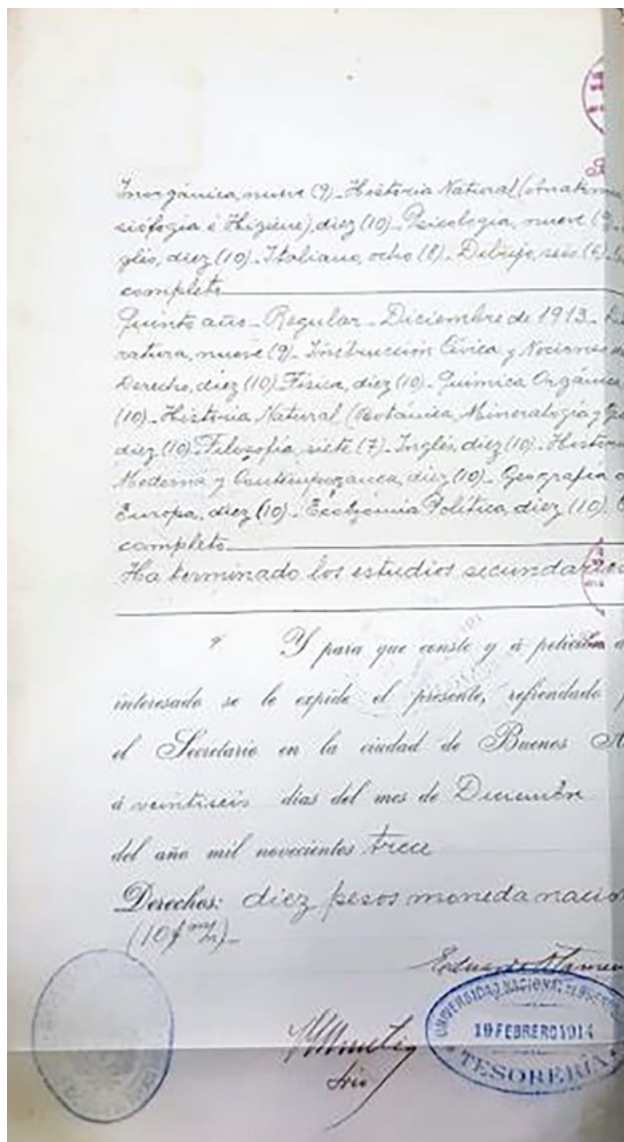 Inorgánica, nueve (9) - Historia Natural (Anatom
siología é Higiene), diez (10) - Psicología, nueve (9) -
glés, diez (10) - Italiano, ocho (8) - Dibujo, seis (6) -
completo
Quinto año - Regular - Diciembre de 1913 - Li
ratura, nueve (9) - Instrucción Cívica y Nociones de
Derecho, diez (10) Física, diez (10) - Química Orgánica,
(10) - Historia Natural (Botánica, Mineralogía y Ge
diez (10) - Filosofía, siete (7) - Inglés, diez (10) - Historia
Moderna y Contemporanea, diez (10) - Geografía d
Europa, diez (10) - Economía Política, diez (10).
completo
Ha terminado los estudios secundarios
Y para que conste y á petición d
interesado se le expide el presente, refrendado p
el Secretario en la ciudad de Buenos A
á veintiseis días del mes de Diciembre
del año mil novecientos trece
Derechos: diez pesos moneda nacion
(10 $ m/n) -
UNIVERSIDAD NACIONAL DE BUENOS
19 FEBRERO 1914
TESORERÍA
Srio